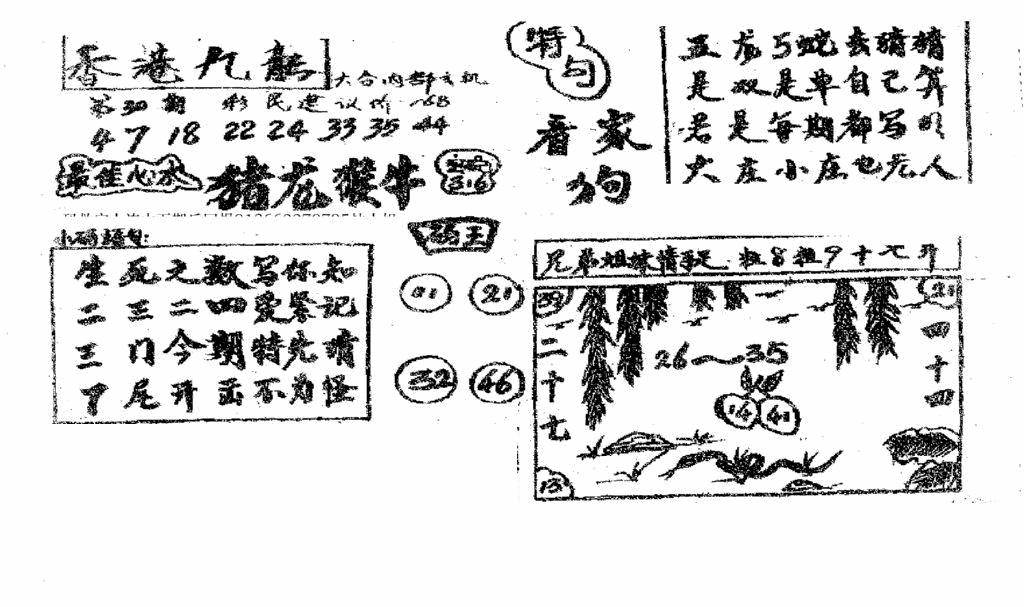 香港九龍
六合内部玄机
第30期 彩民建议价
4 7 18 22 24 33 35 44
最佳心水
猪龙猴牛
316
特句
看家
狗
五龙与蛇去猜猜
是双是单自己算
君是每期都写
大庄小庄也无人
小码
生死之数写你知
二三二四爱签记
三门今期特先
尾开出不为怪
码王
01 21
32 46
兄弟姐妹情 8 9 十七开
39
21
二十七
26~35
四十四
14 41
13